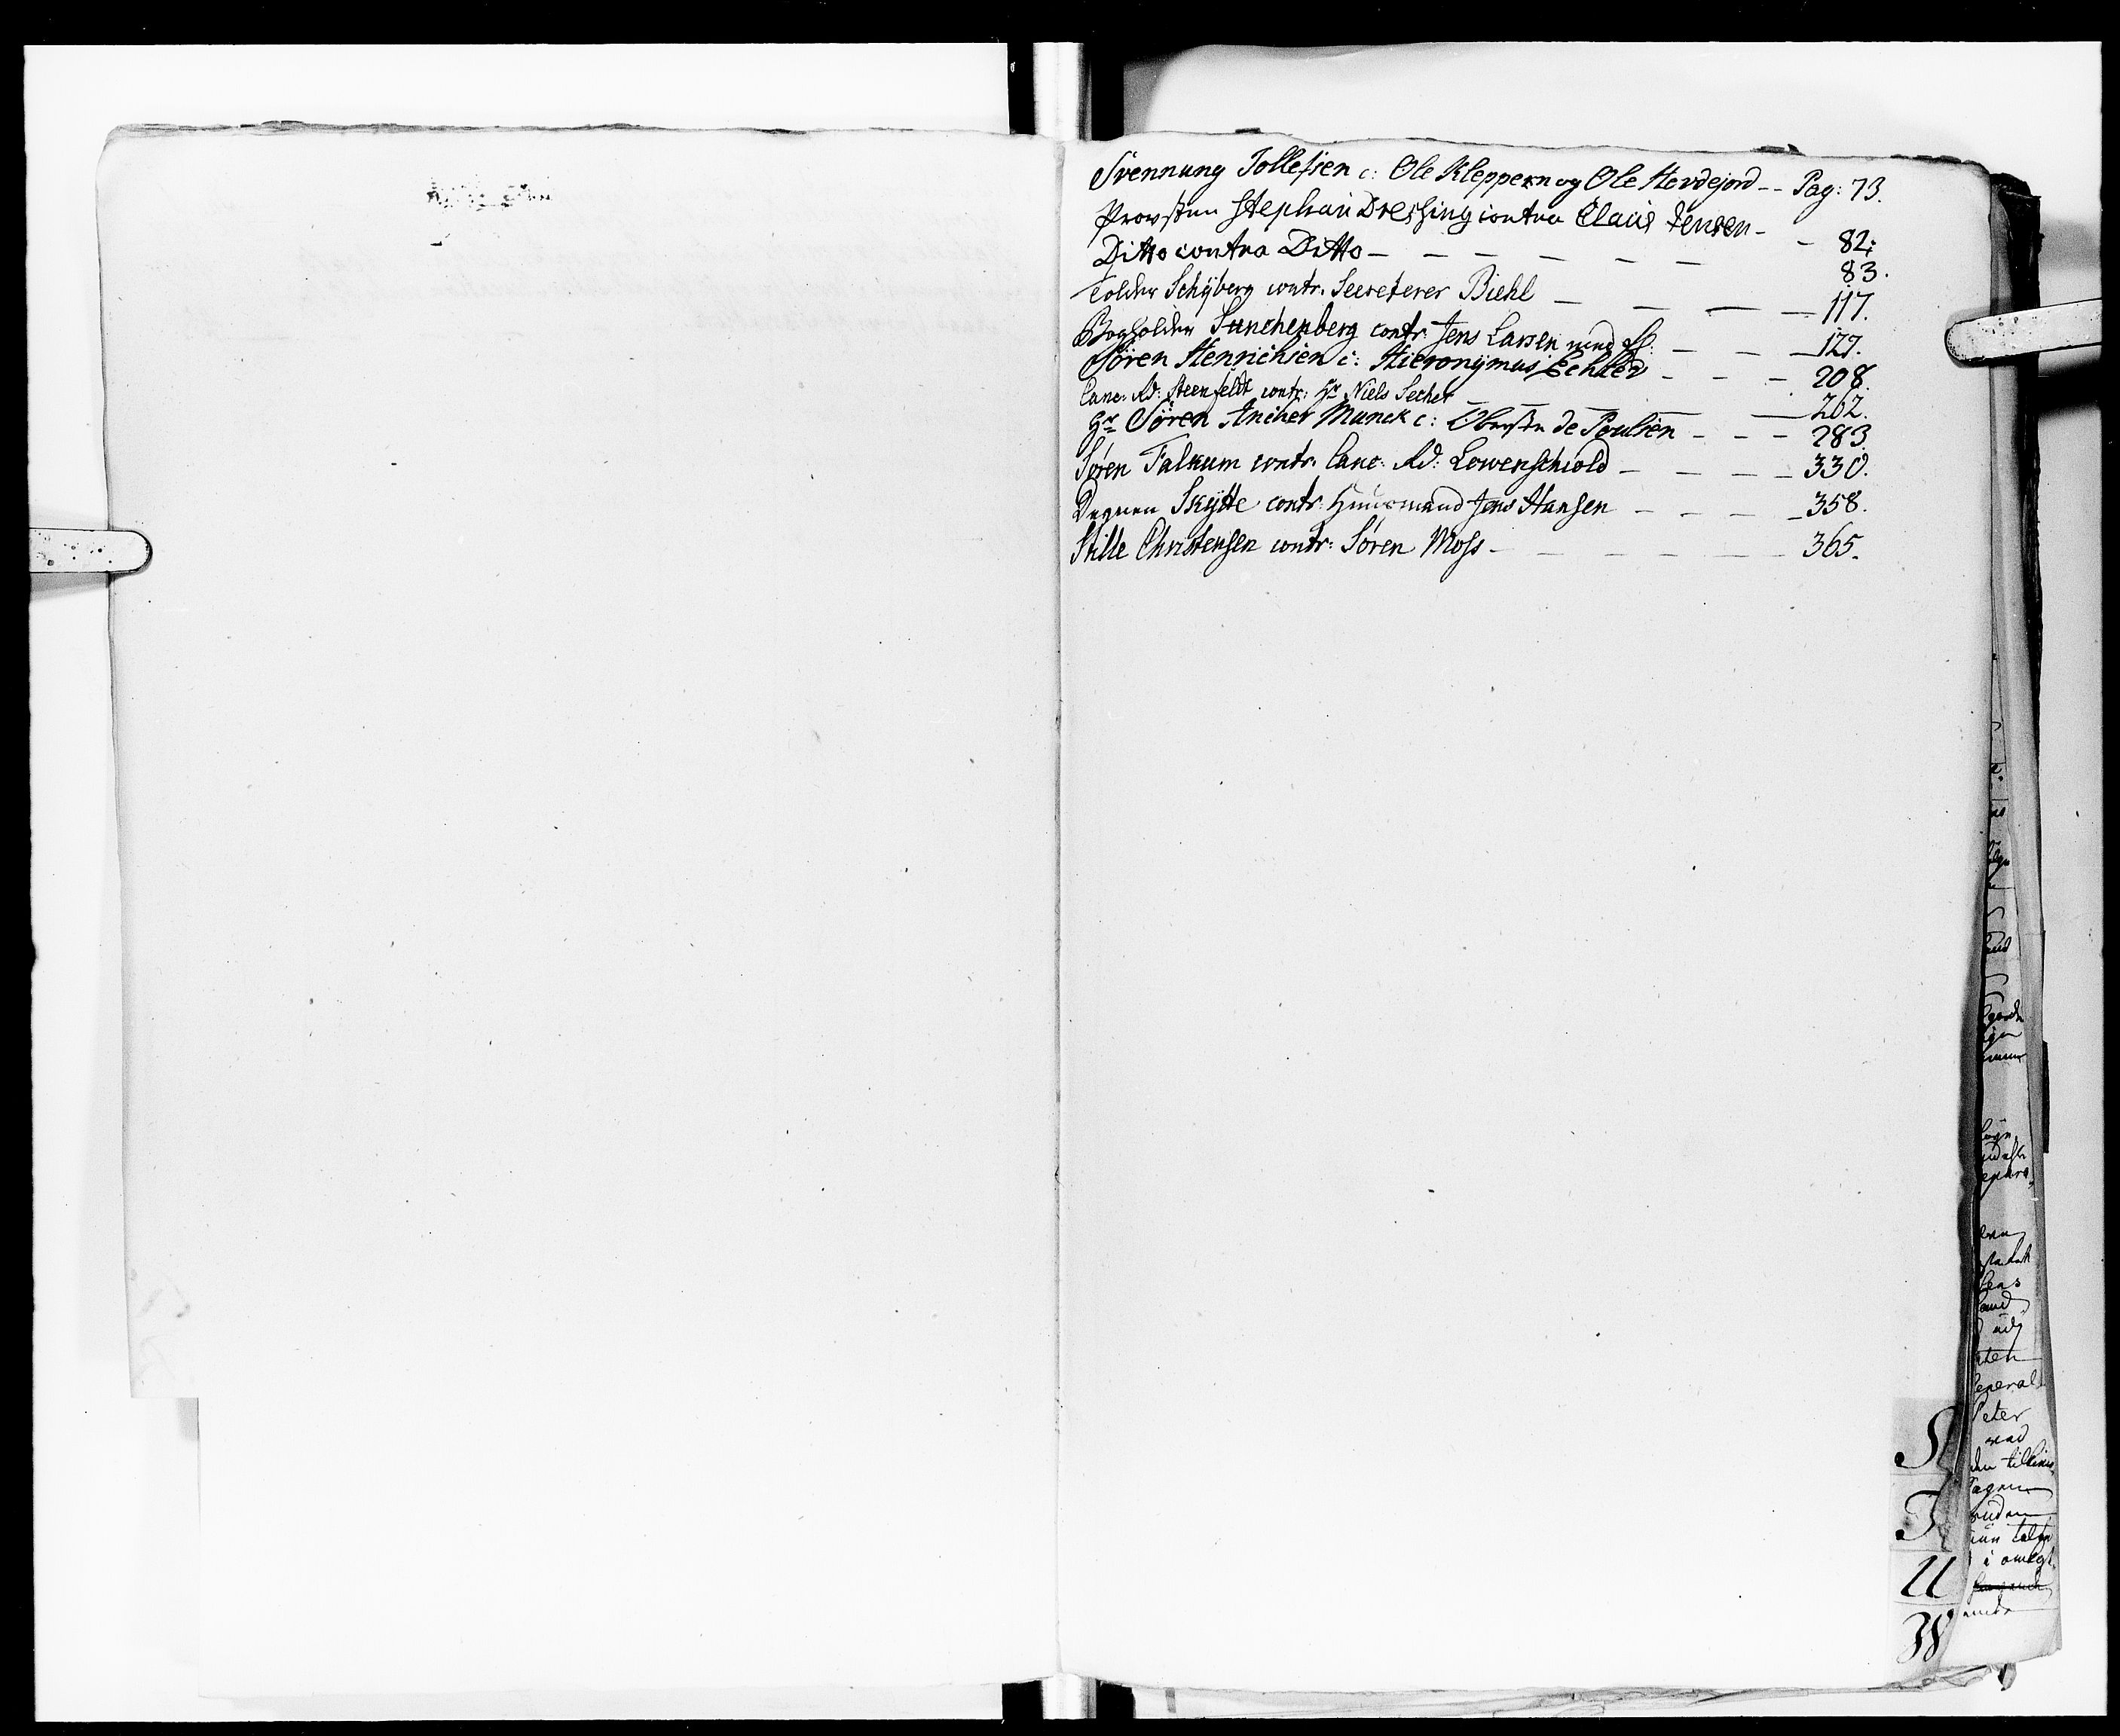 Svennung Tollefsen c: Ole Kleppern og Ole Herdejord -- Pag: 73.
Provsten Stephan Dressing contra Claus Jensen - - 82;
Ditto contra Ditto - - - - - - - 83.
Tolder Schyberg contr. Secreterer Biehl - - - - 117.
Bogholder Sunchenberg contr. Jens Larsen - - - 127.
Sören Henrichsen c: Hieronymus Echter - - - 208.
Canc: Rd: Steenfeldt contr: Hr Niels Secher - - - - 262.
Hr Sören Ancher Munck c: Obersten de Poulsen - - - 283.
Søren Falkum contr. Canc: Rd: Lowenschiold - - - - 330.
Degnen Skytte contr: Huusmand Jens Hansen - - - - 358.
Stille Christensen contr: Søren Moss - - - - - - - 365.
S
T
U